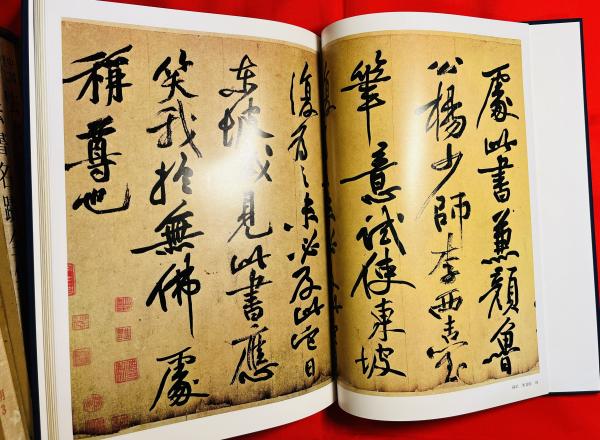 處此書兼顏魯
公楊少師李西臺
筆意試使東坡
復為之未必及此它日
東坡或見此書應
笑我於無佛處
稱尊也
名蹟